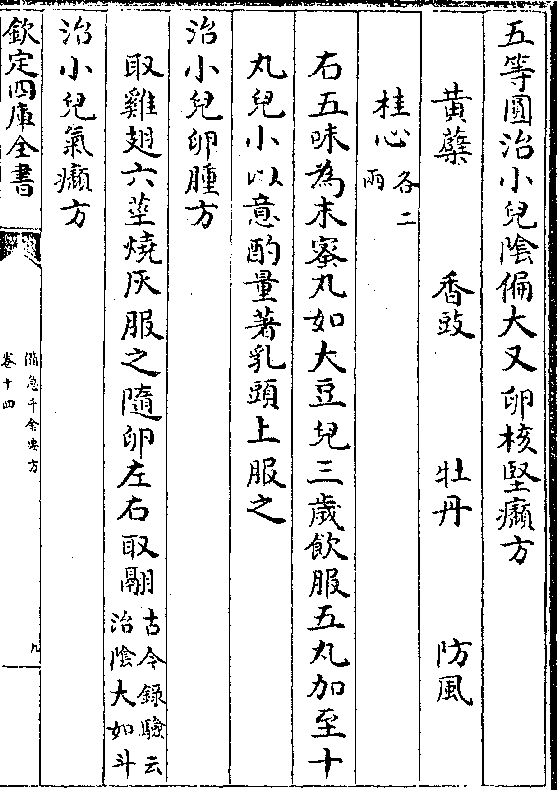 五等圓治小兒陰偏大又卵核堅癩方
黄蘗　香豉　牡丹　防風
桂心各二兩
右五味為末蜜丸如大豆兒三歲飲服五丸加至十
丸兒小以意酌量著乳頭上服之
治小兒卵腫方
取雞翅六莖燒灰服之隨卵左右取翮古今錄驗云治陰大如斗
治小兒氣癩方
欽定四庫全書
備急千金要方
卷十四
九